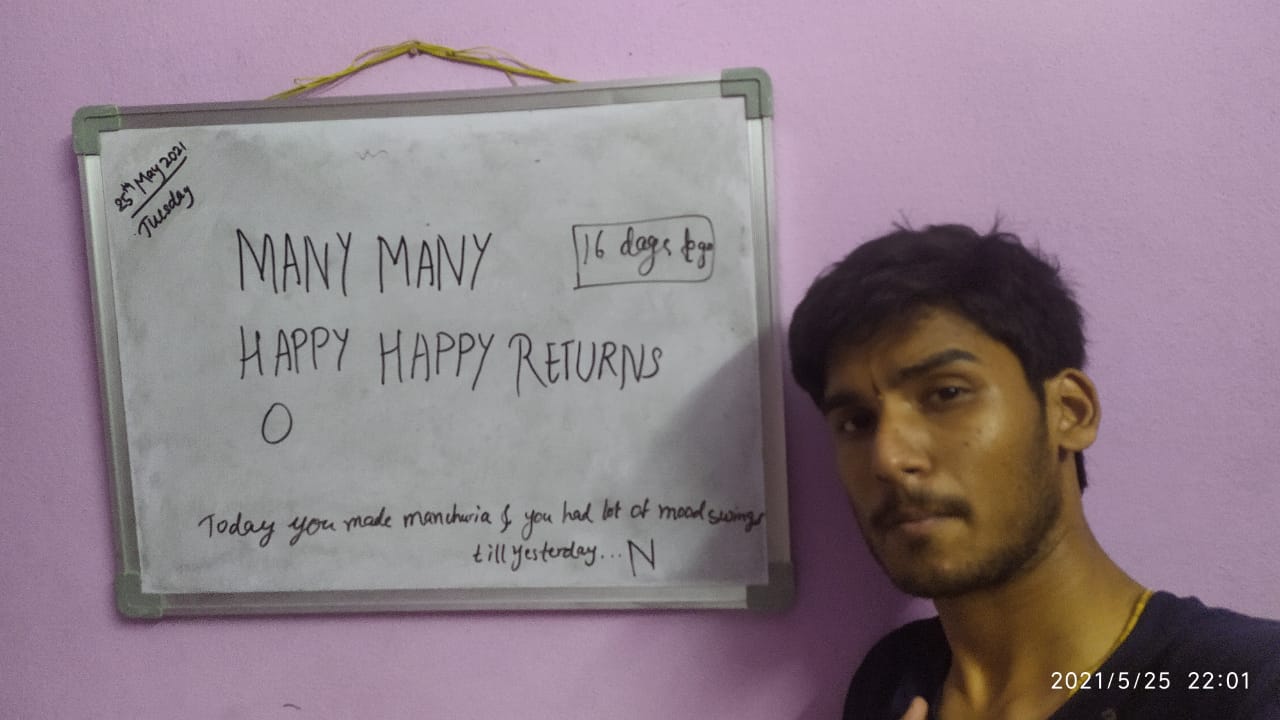 25th May 2021
Tuesday
MANY MANY
16 days to go
HAPPY HAPPY RETURNS
O
Today you made manchuria & you had lot of mood swings
till yesterday... N
2021/5/25 22:01